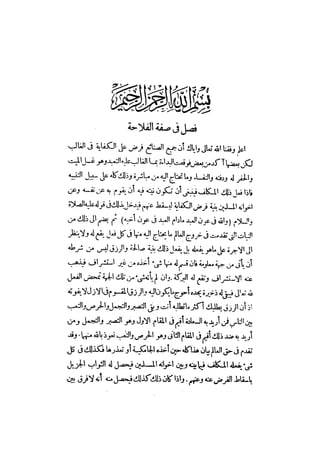 بسم الله الرحمن الرحيم
فصل فى صفة الفلاحة
اعلم وفقنا الله تعالى واياك أن جميع الصنائع فرض على الكفاية فى الغالب
لكن بعضها آكد من بعض فوقعت البداءة بما الغالب عليه التعبد وهو غسل الميت
والحفر له ودفنه والنفساء وما تحتاج اليه من مباشرة وذلك كله على سبيل التنبيه
فاذا فعل ذلك المكلف فينبغى أن تكون نيته فيه أن يقوم به عن نفسه وعن
اخوانه المسلمين بنية فرض الكفاية ليسقط عنهم فيدخل بذلك فى قوله عليه الصلاة
والسلام (والله فى عون العبد مادام العبد فى عون أخيه) ثم يضم الى ذلك من
النيات التى تقدمت فى خروج العالم ما يحتاج اليه منها فى كل فعل يقع له ولا ينظر
الى الاجرة على ماهو يفعله بل يفعل ذلك بنية صالحة والرزق ليس من شرطه
أن يأتى من جهة معلومة فان قسم له منها شىء أخذه من غير استشراف فيذهب
عنه الاستشراف وتقع له البركة. وان لم يأته شىء من تلك الجهة تمحض الفعل
لله تعالى فيبقى له ذخيرة يجده أحوج ما يكون اليه والرزق المقسوم فى الازل لا يفوته
اذ أن الرزق يطلبك أكثر مما تطلبه أنت وبقى التصبر والتجمل والحرص والتعب
بين الناس فمن أريد به السعادة أقيم فى المقام الاول وهو التصبر والتجمل ومن
أريد به ضد ذلك أقيم فى المقام الثانى وهو الحرص والتعب نعوذ بالله منهما. وقد
تقدم فى حق العالم بيان هذا كله حين أخذه الجامكية أو تعذرها فكذلك فى كل
شىء يفعله المكلف فيما بينه وبين اخوانه المسلمين فيحصل له الثواب الجزيل
باسقاط الفرض عنه وعنهم. واذا كان ذلك كذلك فيحصل منه أنه لا فرق بين